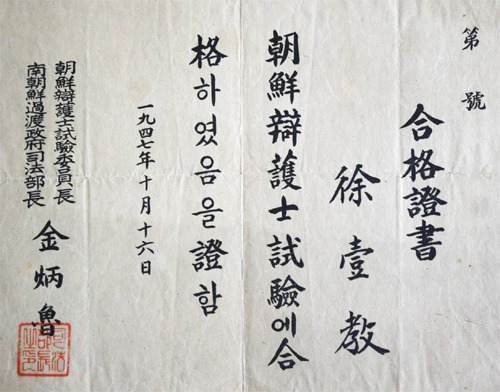 第 號
合格證書
徐壹教
朝鮮辯護士試驗에合
格하였음을證함
一九四七年 十月 十六日
朝鮮辯護士試驗委員長
南朝鮮過渡政府司法部長
金炳魯
司法部長之印